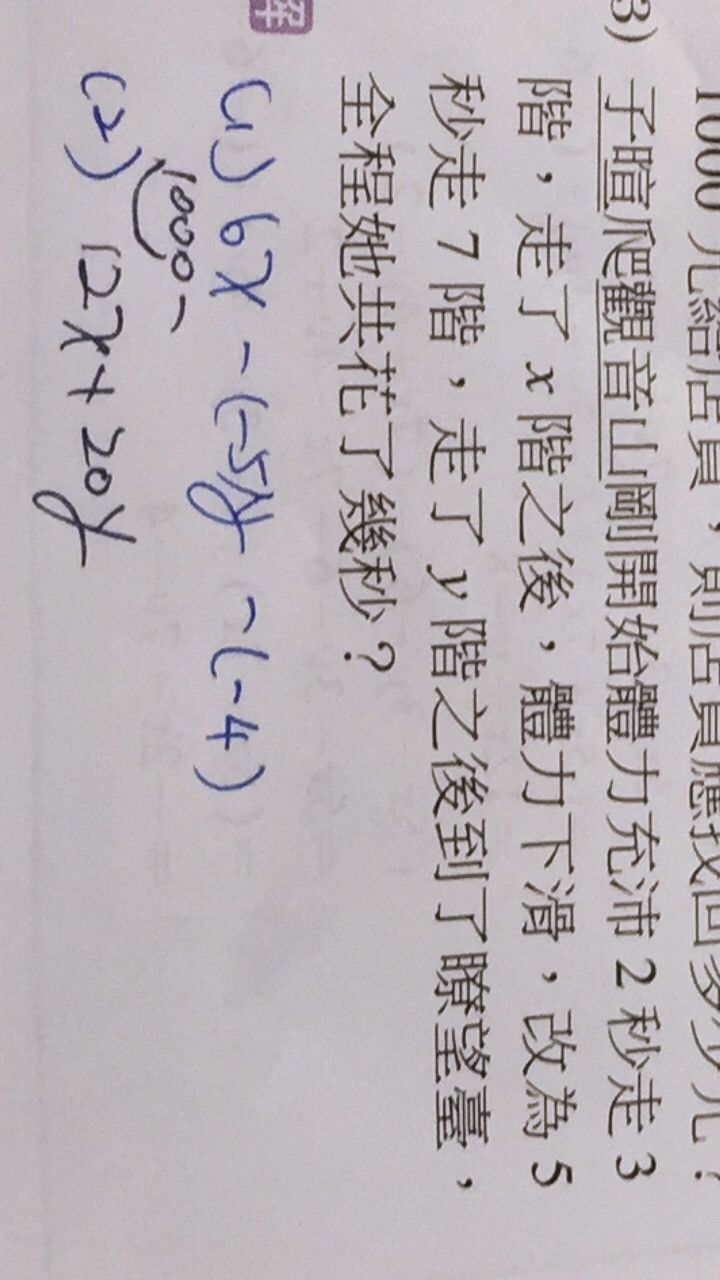 1000 元結店員，則店員應找回多少元？
3) 子暄爬觀音山剛開始體力充沛 2 秒走 3
階，走了 x 階之後，體力下滑，改為 5
秒走 7 階，走了 y 階之後到了瞭望臺，
全程她共花了幾秒？
解
(1) 6x-(-5y-(-4)
1000-
(2) 12x+20y